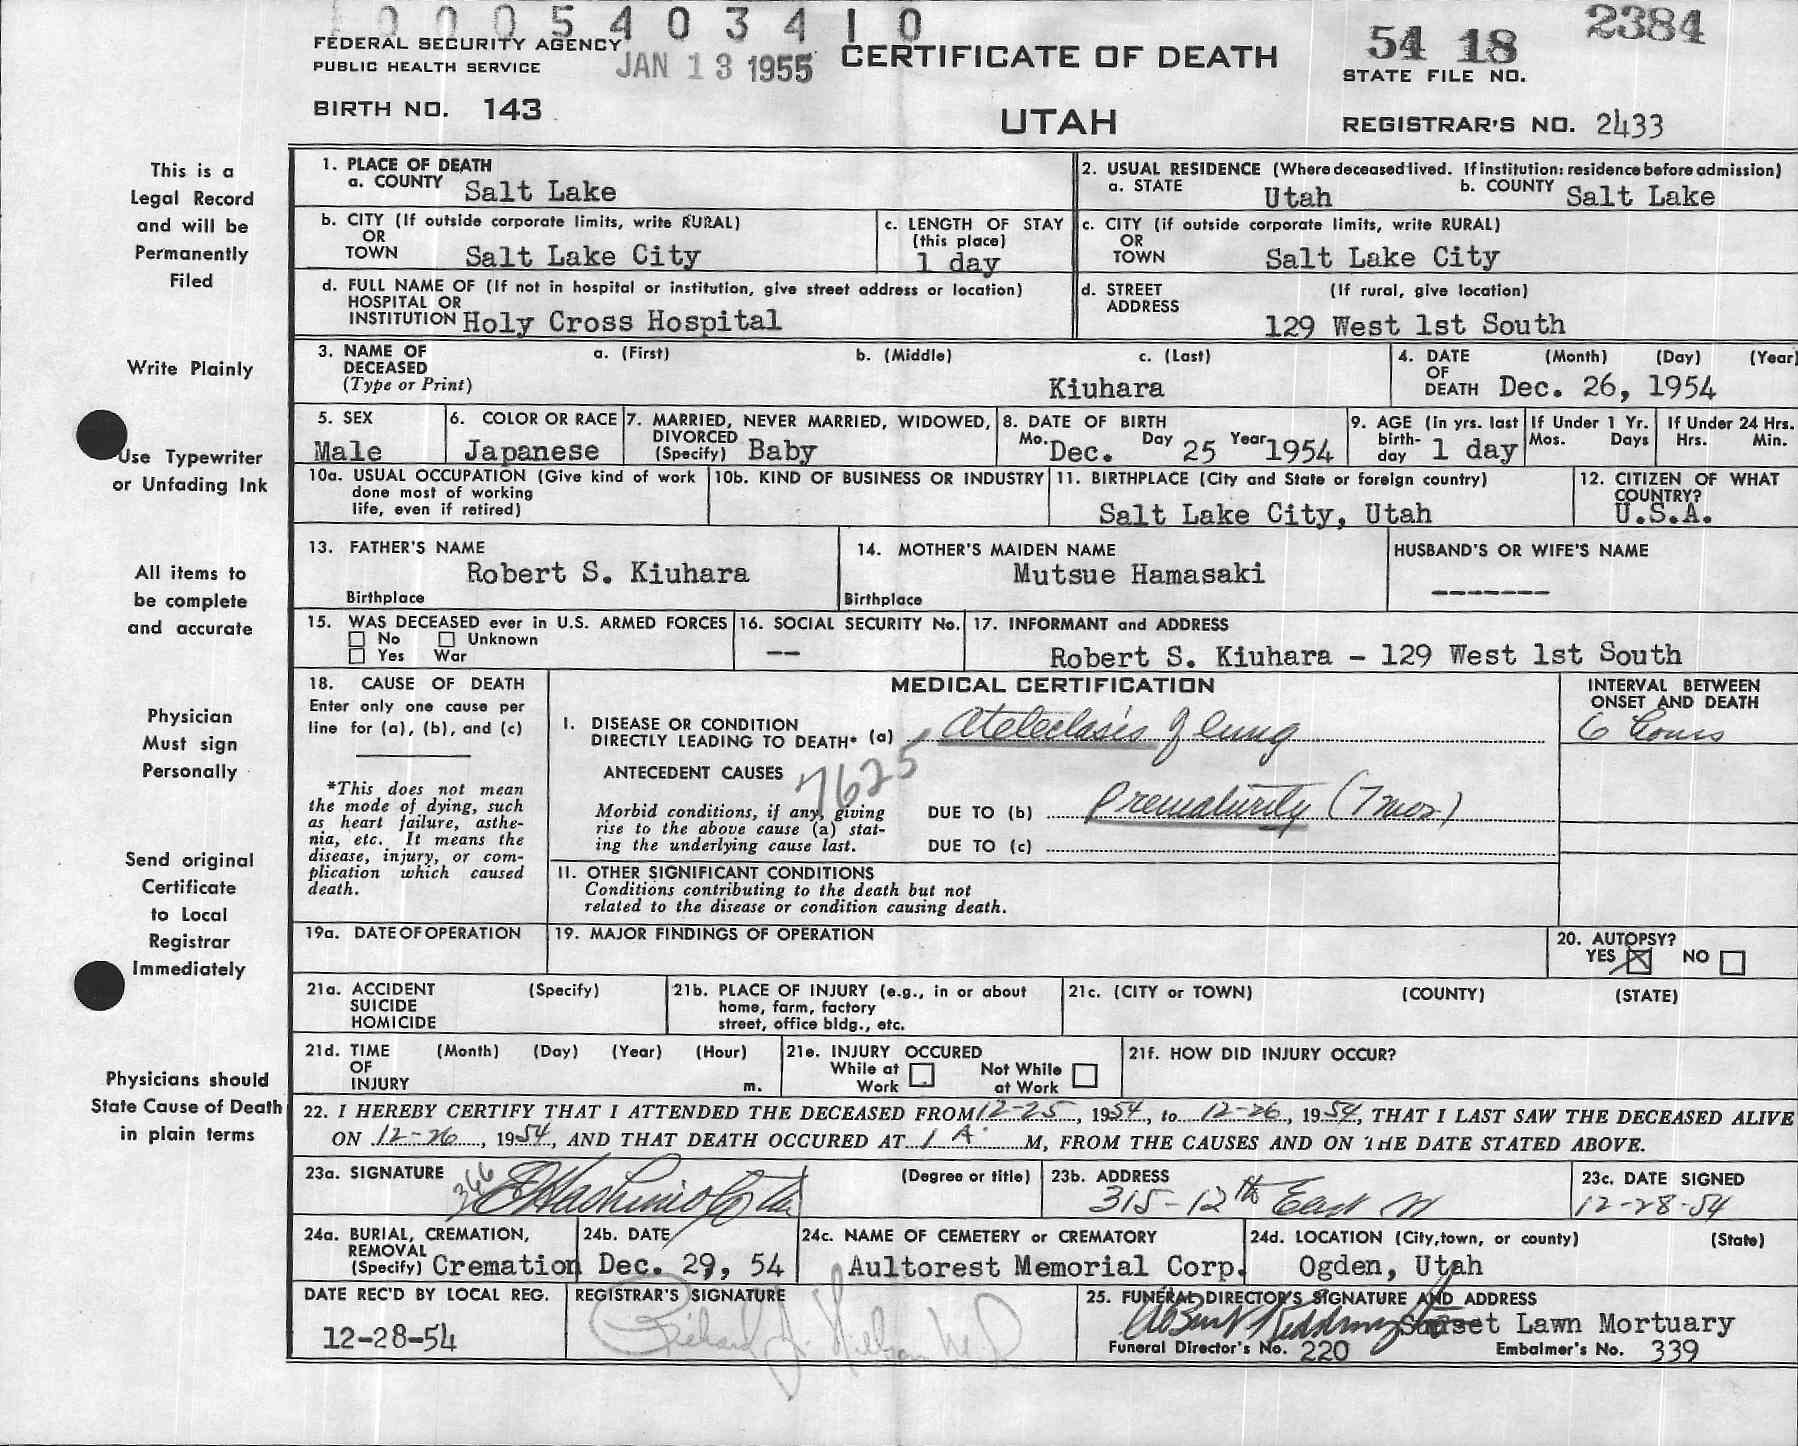 0005403410
FEDERAL SECURITY AGENCY
PUBLIC HEALTH SERVICE
JAN 13 1955
CERTIFICATE OF DEATH
54 18 2384
STATE FILE NO.
BIRTH NO. 143
UTAH
REGISTRAR'S NO. 2433
This is a
Legal Record
and will be
Permanently
Filed
Write Plainly
Use Typewriter
or Unfading Ink
All items to
be complete
and accurate
Physician
Must sign
Personally
Send original
Certificate
to Local
Registrar
Immediately
Physicians should
State Cause of Death
in plain terms
1. PLACE OF DEATH
a. COUNTY Salt Lake
2. USUAL RESIDENCE (Where deceased lived. If institution: residence before admission)
a. STATE Utah b. COUNTY Salt Lake
b. CITY (If outside corporate limits, write RURAL)
OR
TOWN Salt Lake City
c. LENGTH OF STAY
(this place)
1 day
c. CITY (if outside corporate limits, write RURAL)
OR
TOWN Salt Lake City
d. FULL NAME OF (If not in hospital or institution, give street address or location)
HOSPITAL OR
INSTITUTION Holy Cross Hospital
d. STREET (If rural, give location)
ADDRESS
129 West 1st South
3. NAME OF a. (First) b. (Middle) c. (Last)
DECEASED
(Type or Print) Kiuhara
4. DATE (Month) (Day) (Year)
OF
DEATH Dec. 26, 1954
5. SEX
Male
6. COLOR OR RACE
Japanese
7. MARRIED, NEVER MARRIED, WIDOWED,
DIVORCED
(Specify) Baby
8. DATE OF BIRTH
Mo. Dec. Day 25 Year 1954
9. AGE (in yrs. last
birth-
day 1 day
If Under 1 Yr.
Mos. Days
If Under 24 Hrs.
Hrs. Min.
10a. USUAL OCCUPATION (Give kind of work
done most of working
life, even if retired)
10b. KIND OF BUSINESS OR INDUSTRY
11. BIRTHPLACE (City and State or foreign country)
Salt Lake City, Utah
12. CITIZEN OF WHAT
COUNTRY?
U.S.A.
13. FATHER'S NAME
Robert S. Kiuhara
Birthplace
14. MOTHER'S MAIDEN NAME
Mutsue Hamasaki
Birthplace
HUSBAND'S OR WIFE'S NAME
-------
15. WAS DECEASED ever in U.S. ARMED FORCES
No Unknown
Yes War
16. SOCIAL SECURITY No.
--
17. INFORMANT and ADDRESS
Robert S. Kiuhara - 129 West 1st South
18. CAUSE OF DEATH
Enter only one cause per
line for (a), (b), and (c)
*This does not mean
the mode of dying, such
as heart failure, asthe-
nia, etc. It means the
disease, injury, or com-
plication which caused
death.
MEDICAL CERTIFICATION
I. DISEASE OR CONDITION
DIRECTLY LEADING TO DEATH* (a) Atelectasis of lung
ANTECEDENT CAUSES 7625
Morbid conditions, if any, giving
rise to the above cause (a) stat-
ing the underlying cause last.
DUE TO (b) Prematurity (7 mos.)
DUE TO (c)
II. OTHER SIGNIFICANT CONDITIONS
Conditions contributing to the death but not
related to the disease or condition causing death.
INTERVAL BETWEEN
ONSET AND DEATH
6 hours
19a. DATE OF OPERATION
19. MAJOR FINDINGS OF OPERATION
20. AUTOPSY?
YES NO
21a. ACCIDENT (Specify)
SUICIDE
HOMICIDE
21b. PLACE OF INJURY (e.g., in or about
home, farm, factory
street, office bldg., etc.
21c. (CITY or TOWN) (COUNTY) (STATE)
21d. TIME (Month) (Day) (Year) (Hour)
OF
INJURY m.
21e. INJURY OCCURED
While at Not While
Work at Work
21f. HOW DID INJURY OCCUR?
22. I HEREBY CERTIFY THAT I ATTENDED THE DECEASED FROM 12-25, 1954, to 12-26, 1954, THAT I LAST SAW THE DECEASED ALIVE
ON 12-26, 1954, AND THAT DEATH OCCURED AT 1 A. M, FROM THE CAUSES AND ON THE DATE STATED ABOVE.
23a. SIGNATURE (Degree or title)
366
23b. ADDRESS
315-12th East
23c. DATE SIGNED
12-28-54
24a. BURIAL, CREMATION,
REMOVAL
(Specify) Cremation
24b. DATE
Dec. 29, 54
24c. NAME OF CEMETERY or CREMATORY
Aultorest Memorial Corp.
24d. LOCATION (City, town, or county) (State)
Ogden, Utah
DATE REC'D BY LOCAL REG.
12-28-54
REGISTRAR'S SIGNATURE
25. FUNERAL DIRECTOR'S SIGNATURE AND ADDRESS
Sunset Lawn Mortuary
Funeral Director's No. 220 Embalmer's No. 339